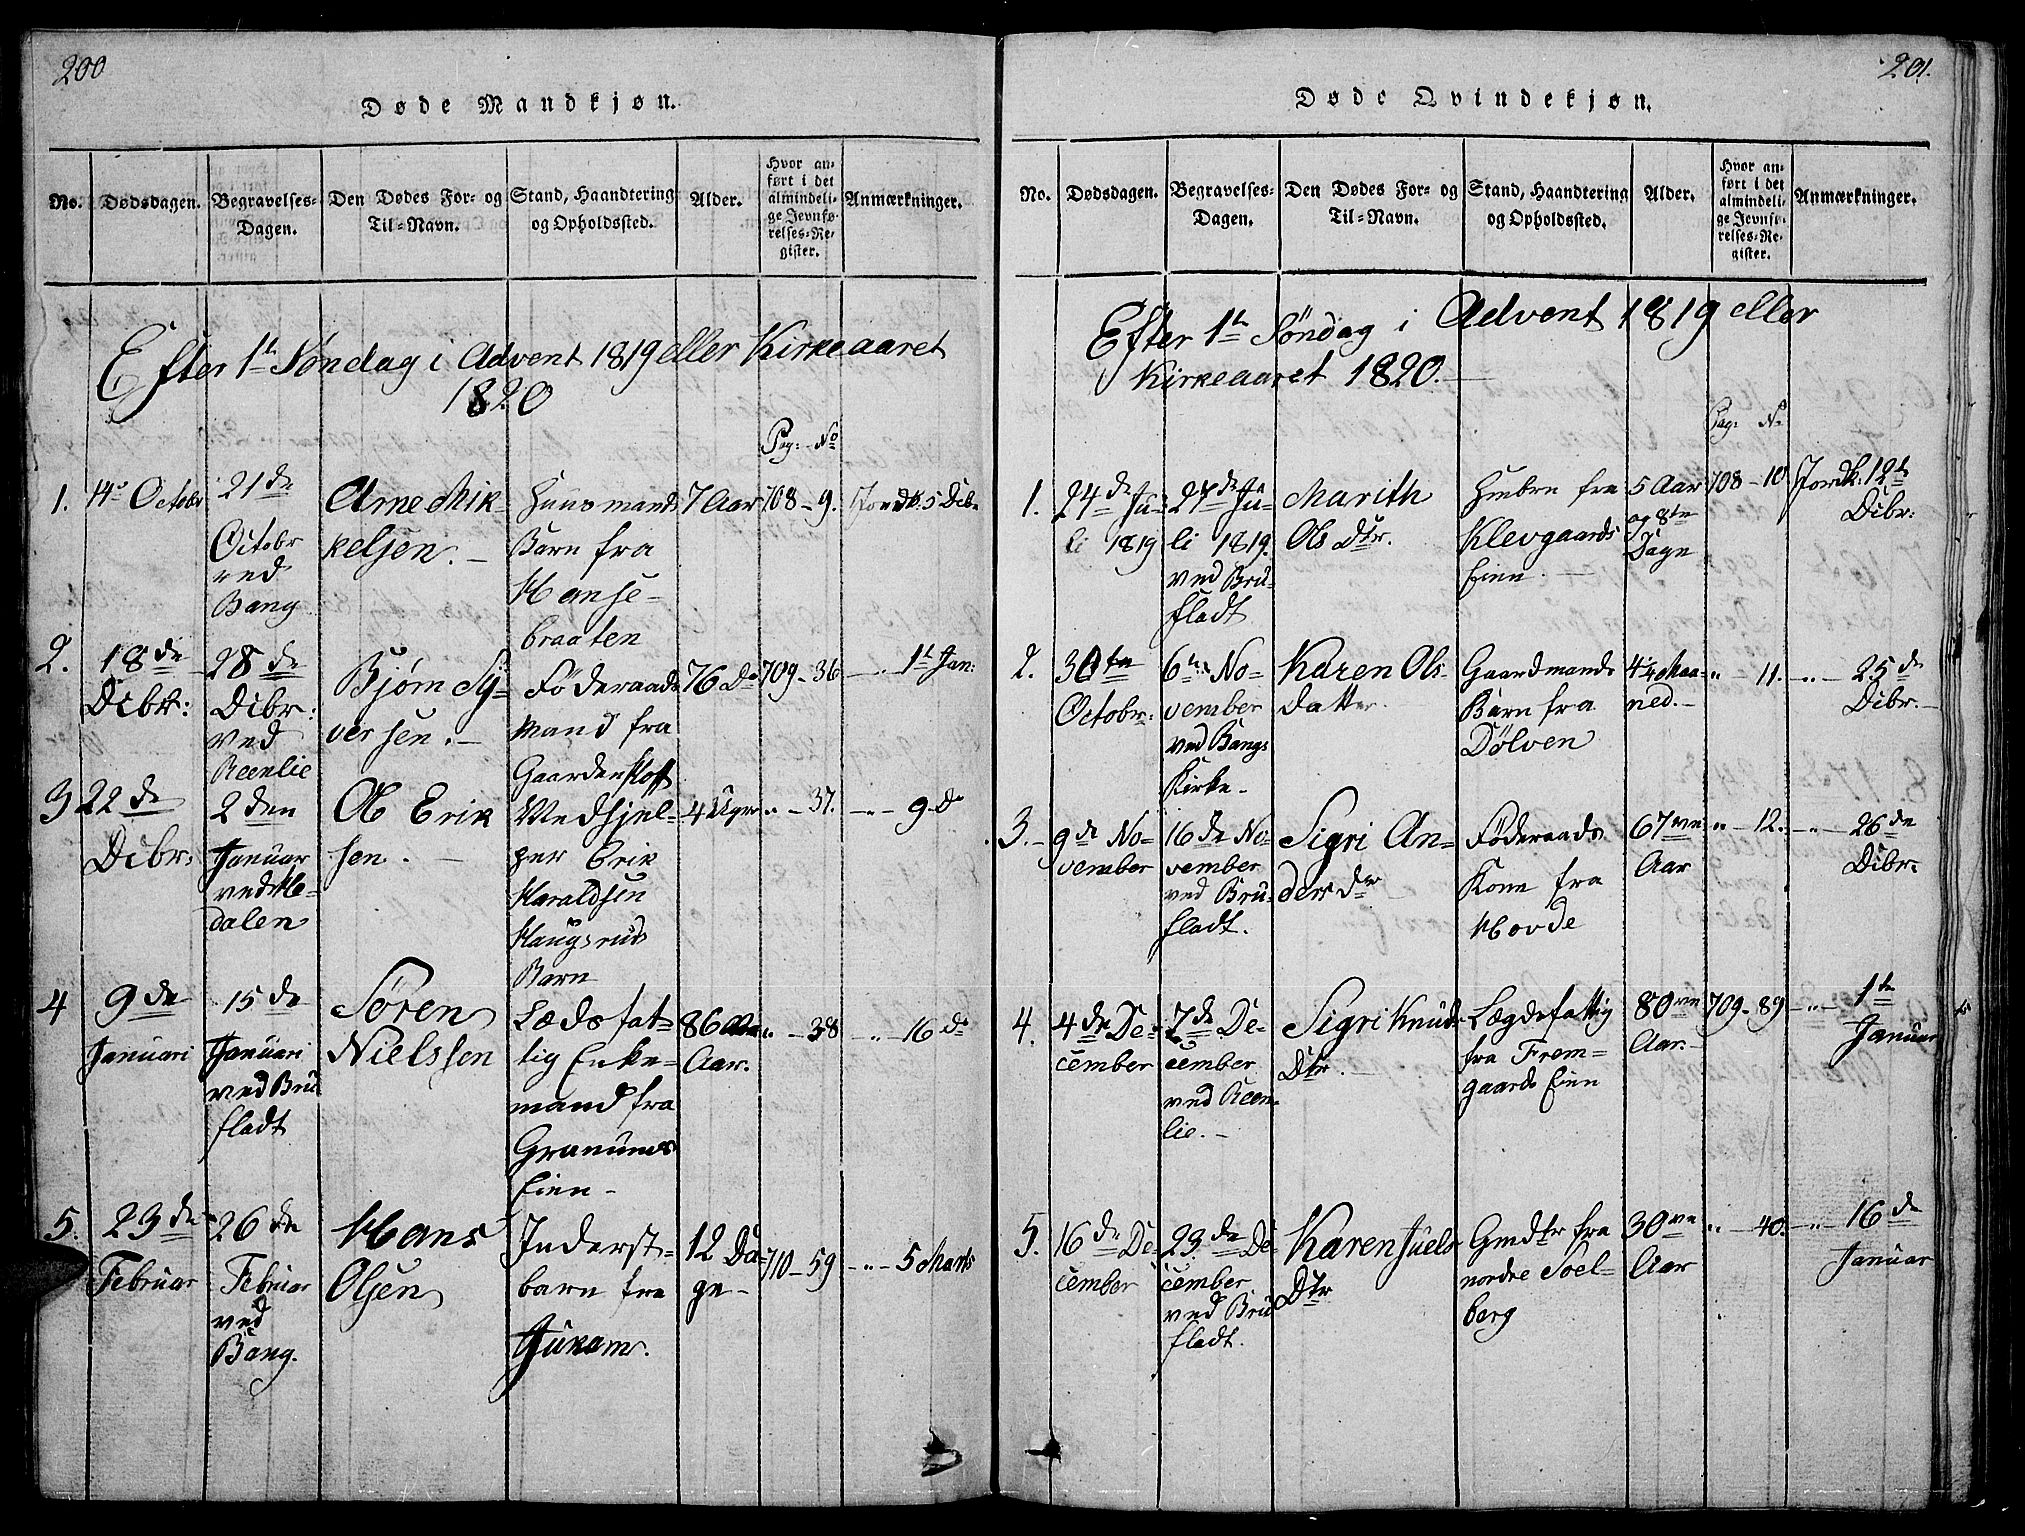 200
Døde Mandkjøn.
No. Dødsdagen. Begravelses-Dagen. Den Dødes For- og Til-Navn. Stand, Haandtering og Opholdssted. Alder. Hvor anført i det almindelige Jevnførelses-Register. Anmærkninger.
Efter 1te Søndag i Advent 1819 eller Kirkeaaret
1820
Pag: No
1. 14de Octobr
21de
Octobr
ved
Bang
Arne Mik-
kelsen. –
Huusmands
Barn fra
Hanse-
braaten
7 Aar
708 – 9.
Jordk. 5 Dibr
2.
18de
Dibr:
28de
Dibr:
ved
Reenlie
Bjørn Sy-
versen. –
Föderaads
Mand fra
Gaarden Hoff
76 Do
709 – 36
– „ – 1te Jan:
3
22de
Dibr:
2den
Januar
ved He-
dalen
Ole Erik
sen. –
Medhjel-
per Erik
Haraldsen
Haugsruds
Barn
4 Uger
„ – 37.
– „ – 9. Do
4
9de
Januari
15de
Januari
ved Bru
fladt
Sören
Nielssen
Lædsfat-
tig Enke-
mand fra
Granums
Eien –
86
Aar.
„ – 38
– „ – 16de
5.
23de
Februar
26de
Februar
ved
Bang.
Hans
Olsen
Inderst-
barn fra
Jukam.
12 Da-
ge –
710 – 59
– „ – 5 Marts
201.
Døde Qvindekjøn.
No. Dødsdagen. Begravelses-Dagen. Den Dødes For- og Til-Navn. Stand, Haandtering og Opholdssted. Alder. Hvor anført i det almindelige Jevnførelses-Register. Anmærkninger.
Efter 1te Søndag i Advent 1819 eller
Kirkeaaret 1820. –
Pag: No
1.
24de Ju-
li 1819
27de Ju-
li 1819.
ved Bru-
fladt
Marith
Ols Dtr.
fra
Klevgaards
Eien. –
5 Aar
og 8te
Dage
708 – 10
Jordk: 12te
Dibr:
2.
30te
Octobr:
6te No-
vember
ved Bangs
Kirke –
Karen Ols-
datter
Gaardmands
Barn fra
Dölven
4 1/4 Maa-
ned. –
„ 11.
– „ – 25de
Dibr. –
3. –
9de No-
vember
16de No-
vember
ved Bru-
fladt.
Sigri An-
ders dr
Föderaads
Kone fra
Hovde
67ve
Aar
„ – 12.
– „ – 26de
Dibr:
4.
4de De-
cember
7de De-
cember
ved Reen-
lie. –
Sigri Knuds
Dtr. –
Lægdefattig
fra Frem-
gaards Eien
80ve
Aar. –
709 – 89
– „ – 1te
Januar
5.
16de De-
cember
23de De-
cember
ved Bru
fladt.
Karen Juels
Dtr
Gmdtr fra
nordre Soel-
berg
30ve
Aar
„ – 40.
– „ – 16de
Januar